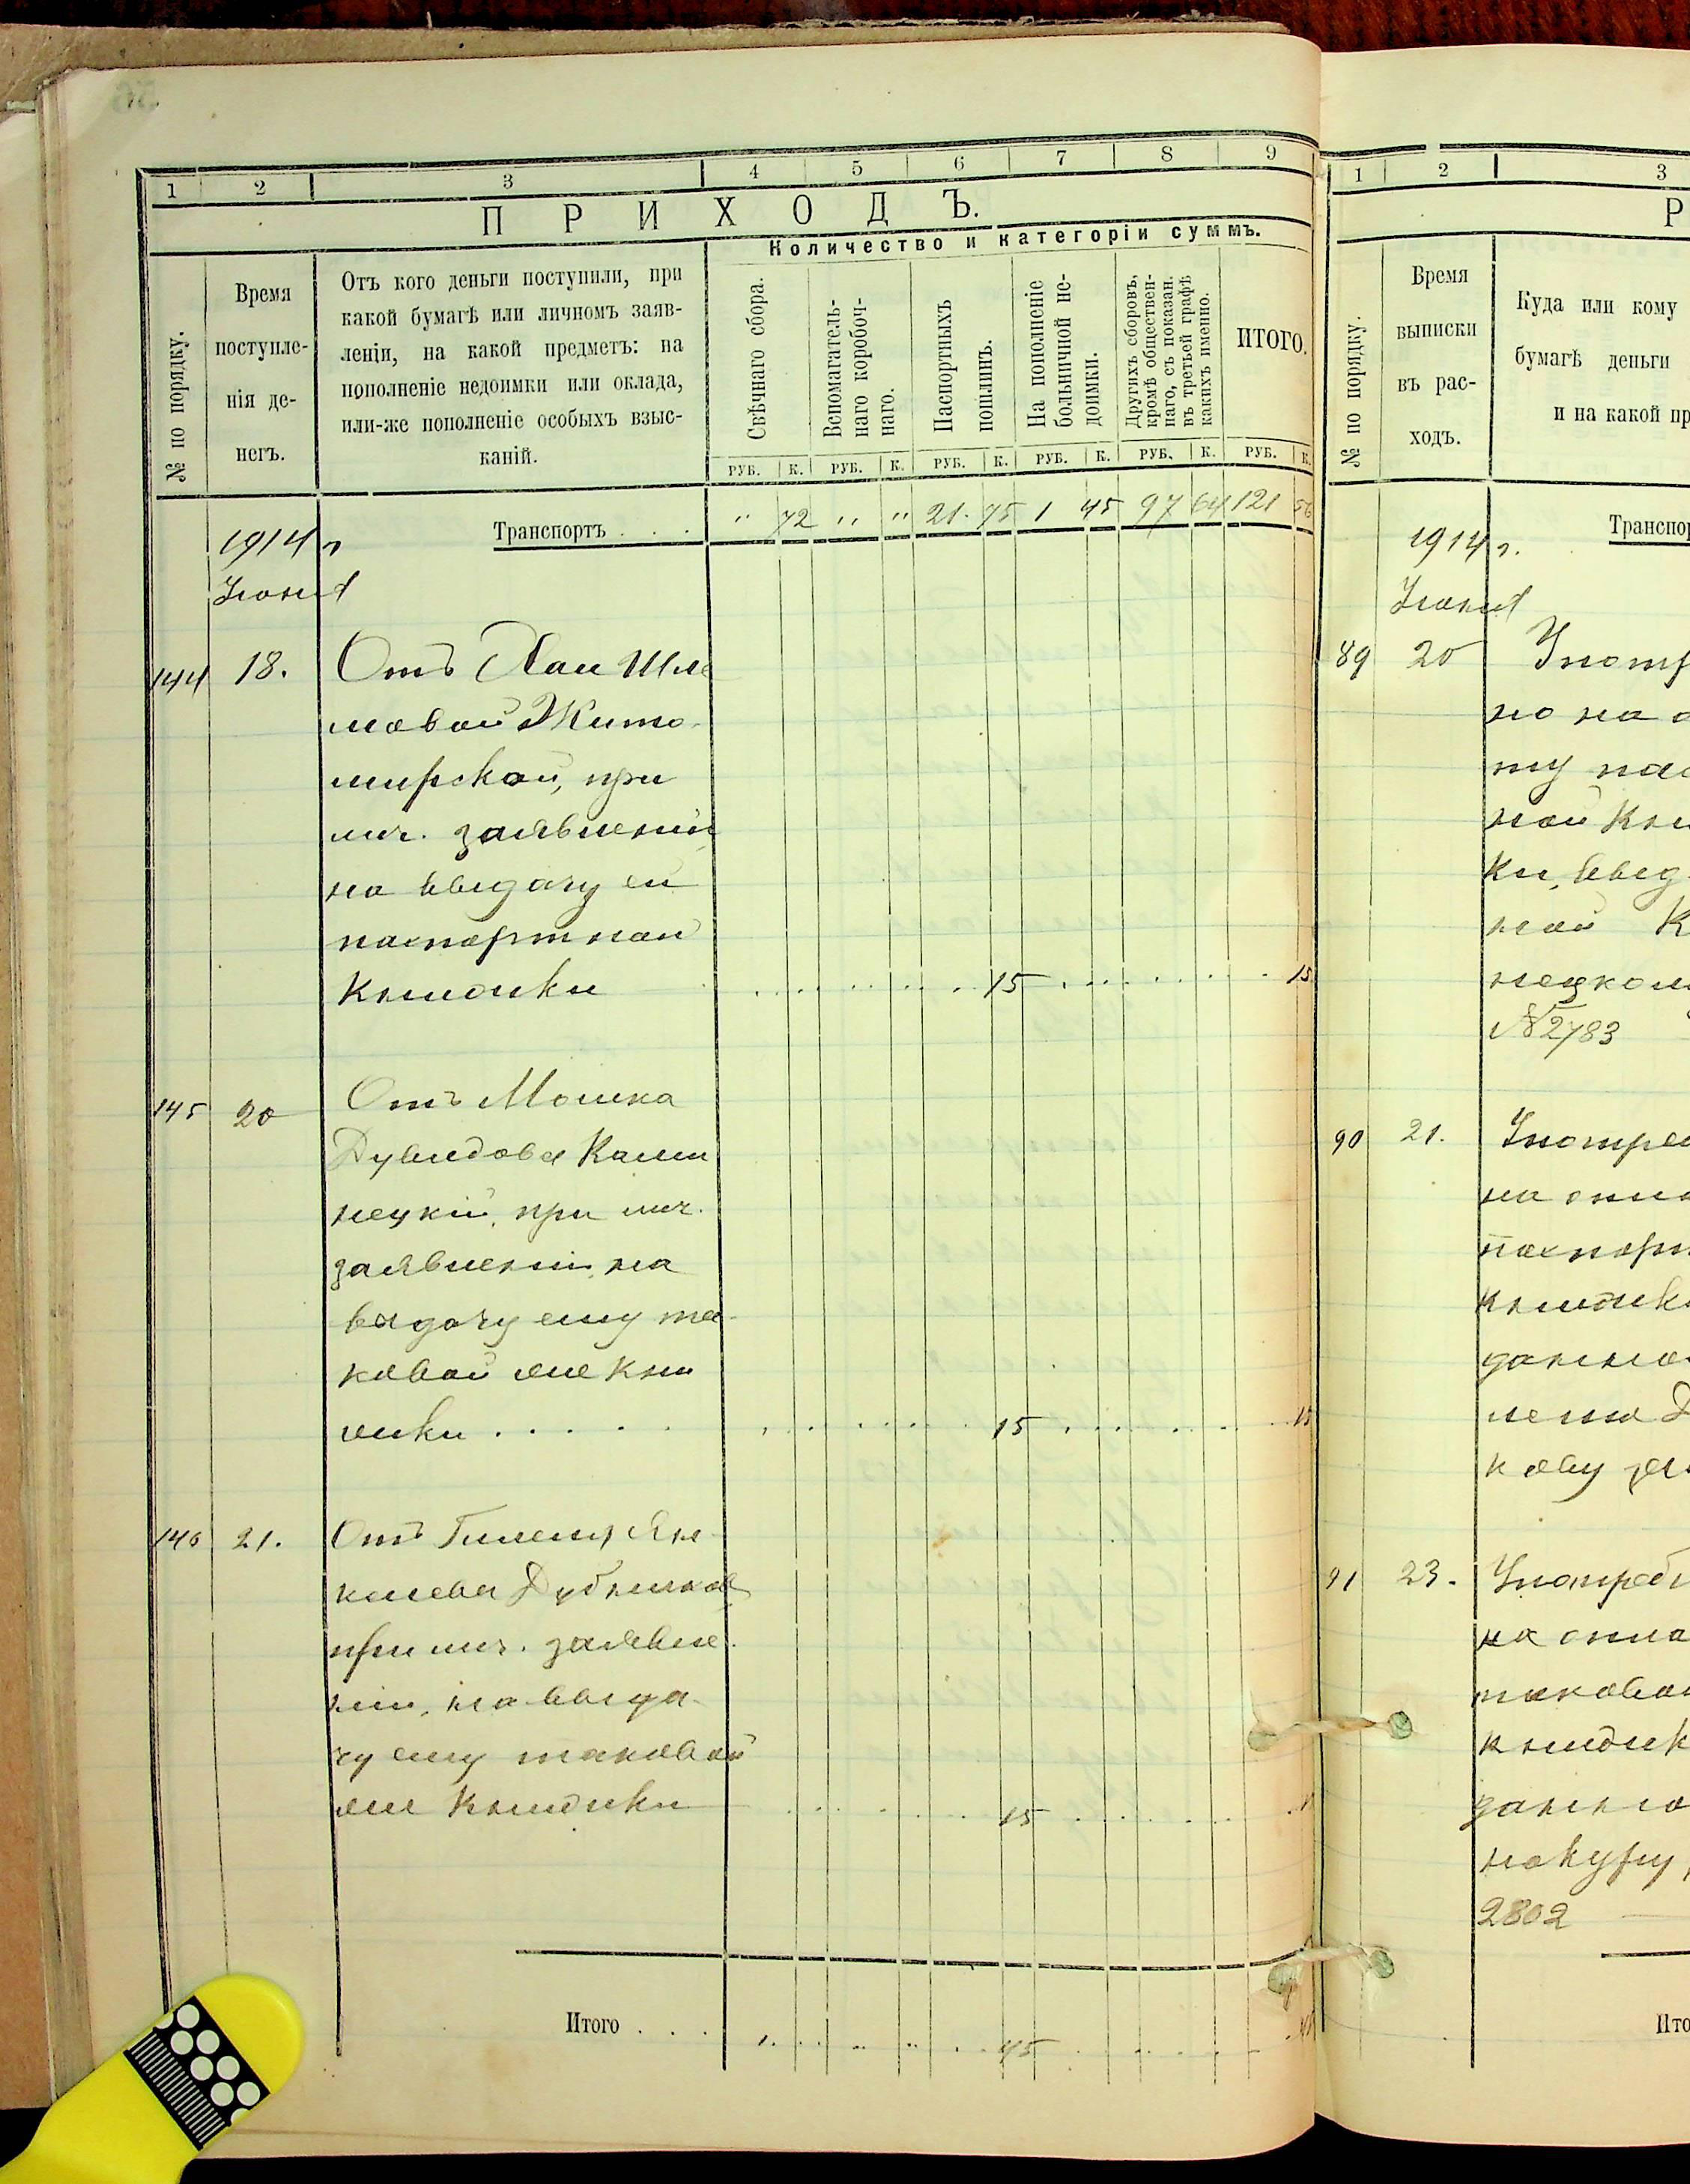 1 2 3 4 5 6 7 8 9
ПРИХОДЪ.
Количество и категоріи суммъ.
№ по порядку.
Время
поступле-
нія де-
негъ.
Отъ кого деньги поступили, при
какой бумагѣ или личномъ заяв-
леніи, на какой предметъ: на
пополненіе недоимки или оклада,
или-же пополненіе особыхъ взыс-
каній.
Свѣчнаго сбора.
Вспомагатель-
наго коробоч-
наго.
Паспортныхъ
пошлинъ.
На пополненіе
больничной не-
доимки.
Другихъ сборовъ,
кромѣ обществен-
наго, съ показан.
въ третьей графѣ
какихъ именно.
ИТОГО.
РУБ. К. РУБ. К. РУБ. К. РУБ. К. РУБ. К. РУБ. К.
Транспортъ . . . " 72 " " 21. 75 1 45 97 64 121 56
1914 г
Іюня
144 18. Отъ Хаи Шле
мовой Жито-
мирской, при
лич. заявленіи,
на выдачу ей
паспортной
книжки 15 15
145 20 Отъ Мошка
Дувидова Ками
нецкій, при лич.
заявленіи, на
выдачу ему та-
ковой же кни
жки . . . . . 15 15
146 21. Отъ Ян-
келева
при лич. заявле-
ніи, на выда-
чу ему таковой
же книжки 15
Итого . . . 45
1 2 3
Р
№ по порядку.
Время
выписки
въ рас-
ходъ.
Куда или кому
бумагѣ деньги
и на какой пр
Транспор
1914 г.
Іюня
89 20 Употр
но на о
ту пас
ной кни
ки, выд
ной К
нецком
№ 2783
90 21. Употре
на опла
паспорт
книжки
данно
91 23. Употреб
на опла
таковой
книжк
данно
2802
Ито